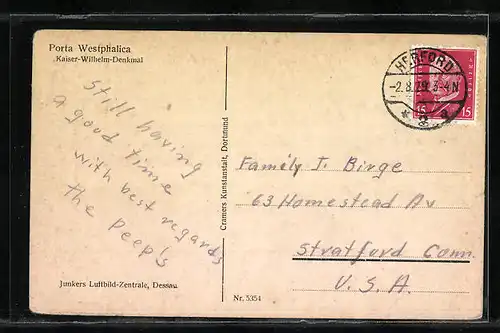 Porta Westphalica
Kaiser-Wilhelm-Denkmal
Still having
a good time
with best regards
the peep's
Junkers Luftbild-Zentrale, Dessau
Cramers Kunstanstalt, Dortmund
Nr. 5354
HERFORD
-2.8.29. 3-4N
* 2 a
15 15
Family J. Birge
63 Homestead Av
Stratford Conn.
U. S. A.